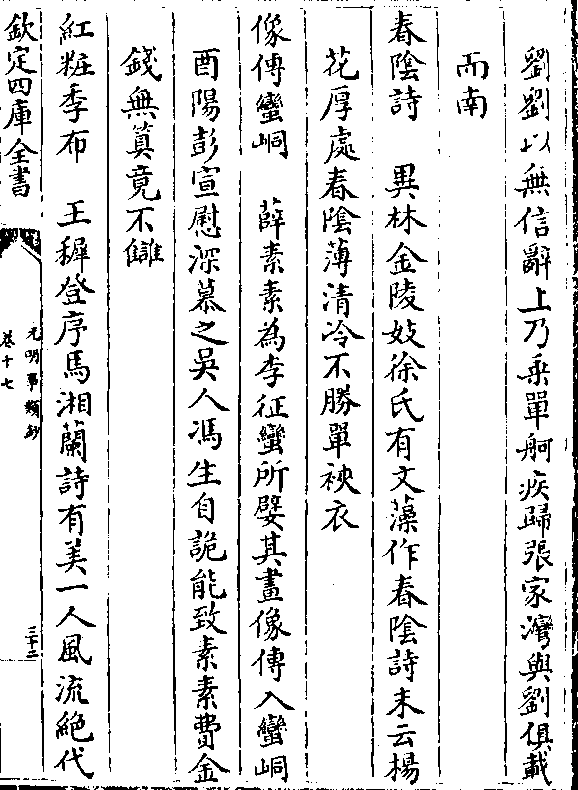 劉劉以無信辭上乃乘單舸疾歸張家灣與劉俱載
而南
春陰詩　異林金陵妓徐氏有文藻作春陰詩末云楊
花厚處春陰薄清冷不勝單裌衣
像傳蠻峒　薛素素為李征蠻所嬖其畫像傳入蠻峒
酉陽彭宣慰深慕之吳人馮生自詭能致素素費金
錢無算竟不讎
紅粧季布　王穉登序馬湘蘭詩有美一人風流絕代
欽定四庫全書
元明事類鈔
卷十七
三十二